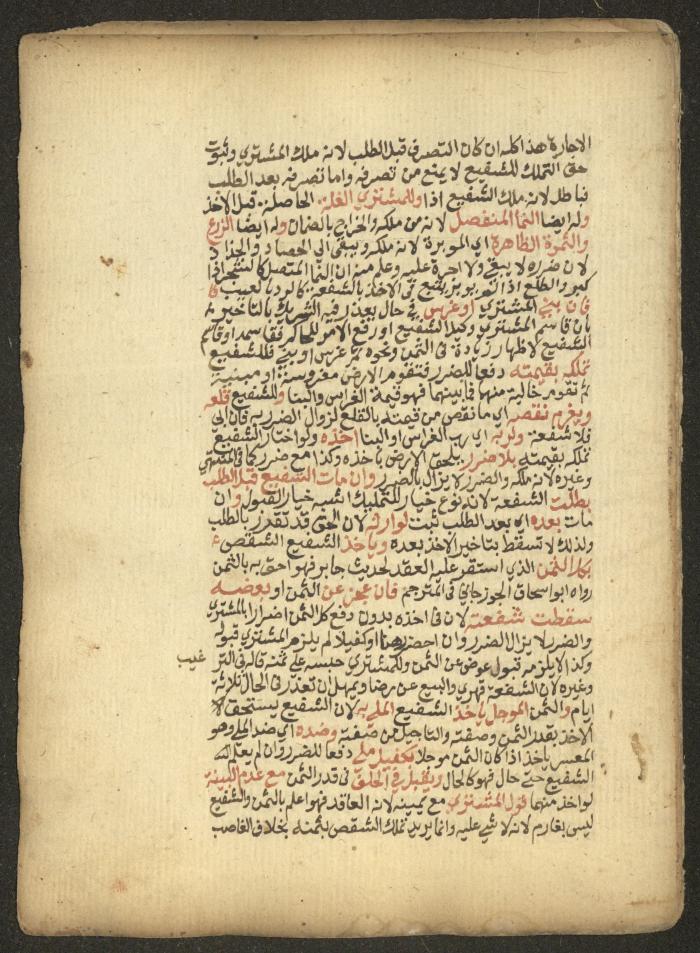 الاجارة هذا كله ان كان التصرف قبل الطلب لانه ملك المشتري وثبوت
حق التملك للشفيع لا يمنع من تصرفه واما تصرفه بعد الطلب
فباطل لانه ملك الشفيع اذا وللمشتري الغلة الحاصلة قبل الاخذ
وله ايضا النما المنفصل لانه من ملكه والخراج بالضمان وله ايضا الزرع
والثمرة الظاهرة اي الموبرة لانه ملكه ويبقى الى الحصاد والجذاذ
لان ضرره لا يبقى ولا اجرة عليه وعلم منه ان النما المتصل كالشجر اذا
كبر والطلع اذا لم يوبر يتبع في الاخذ بالشفعة كالرد بالعيب
فان بنى المشتري او غرس في حال يعذر فيه الشريك بالتاخير
بان قاسم المشتري وكيل الشفيع او رفع الامر للحاكم فقاسمه او قاسم
الشفيع لاظهار زيادة في الثمن ونحوه ثم غرس او بنى فللشفيع
تملكه بقيمته دفعا للضرر فتقوم الارض مغروسة او مبنية
ثم تقوم خالية منهما فما بينهما فهو قيمة الغراس والبنا وللشفيع قلعه
ويغرم نقصه اي ما نقص من قيمته بالقلع لزوال الضرر به فان ابى
فلا شفعة ولربه اي رب الغراس او البنا اخذه ولو اختار الشفيع
تملكه بقيمته بلا ضرر يلحق الارض باخذه وكذا مع ضرر كما في المنتهى
وغيره لانه ملكه والضرر لا يزال بالضرر وان مات الشفيع قبل الطلب
بطلت الشفعة لانه نوع خيار للتمليك اشبه خيار القبول وان
مات بعده اي بعد الطلب ثبت لوارثه لان الحق قد تقرر بالطلب
ولذلك لا تسقط بتاخير الاخذ بعده وياخذ الشفيع الشقص
بكل الثمن الذي استقر عليه العقد لحديث جابر فهو احق به بالثمن
رواه ابو اسحاق الجوزجاني في المترجم فان عجز عن الثمن او بعضه
سقطت شفعته لان في اخذه بدون دفع كل الثمن اضرارا بالمشتري
والضرر لا يزال الضرر وان احضر رهنا او كفيلا لم يلزم المشتري قبوله
وكذا لا يلزمه قبول عوض عن الثمن وللمشتري حبسه على ثمنه قاله في التر
غيب
وغيره لان الشفعة قهري والبيع عن رضا ويمهل ان تعذر في الحال ثلاثة
ايام والثمن الموجل ياخذ الشفيع الملي به لان الشفيع يستحق
الاخذ بقدر الثمن وصفته والتاجيل من صفته وضده اي ضد الملي وهو
المعسر ياخذ اذا كان الثمن موجلا بكفيل ملي دفعا للضرر وان لم يعلم
الشفيع حتى حال فهو كالحال ويقبل في الخلف في قدر الثمن مع عدم البينة
لواحد منهما قول المشتري مع يمينه لانه العاقد فهو اعلم بالثمن والشفيع
ليس بغارم لانه لا شي عليه وانما يريد تملك الشقص بثمنه بخلاف الغاصب